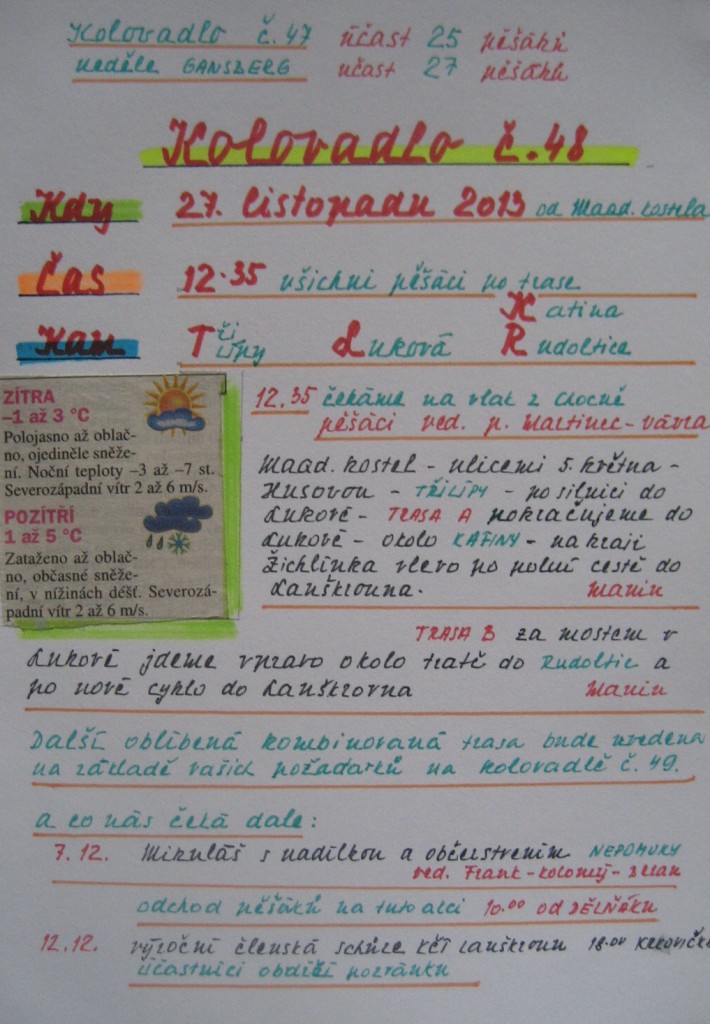 Kolovadlo č.47 účast 25 pěšáků
neděle GANSBERG účast 27 pěšáků
Kolovadlo č.48
Kdy 27. listopadu 2013 od Maad. kostela
Čas 12.35 všichni pěšáci po trase
Katina
Kam Tři Lípy Luková Rudoltice
ZÍTRA
–1 až 3 °C
Polojasno až oblač-
no, ojediněle sněže-
ní. Noční teploty –3 až –7 st.
Severozápadní vítr 2 až 6 m/s.
POZÍTŘÍ
1 až 5 °C
Zataženo až oblač-
no, občasné sněže-
ní, v nížinách déšť. Severozá-
padní vítr 2 až 6 m/s.
12.35 čekáme na vlak z Chocně
pěšáci ved. p. Martinec-Vávra
Maad. kostel - ulicemi 5. května -
Husovou - TŘILÍPY - po silnici do
Lukové - TRASA A pokračujeme do
Lukové - okolo KATINY - na kraji
Žichlínka vlevo po polní cestě do
Lanškrouna. Manin
TRASA B za mostem v
Lukové jdeme vpravo okolo tratě do Rudoltic a
po nové cyklo do Lanškrouna Manin
Další oblíbená kombinovaná trasa bude uvedena
na základě vašich požadavků na kolovadlě č. 49.
a co nás čeká dale:
7.12. Mikuláš s nadílkou a občerstvením NEPOMUKY
ved. Frank-kolomý-
odchod pěšáků na tuto akci 10.00 OD DĚLŇÁKU
12.12. výroční členská schůze KČT Lanškroun 18.00
účastníci obdrží pozvánku